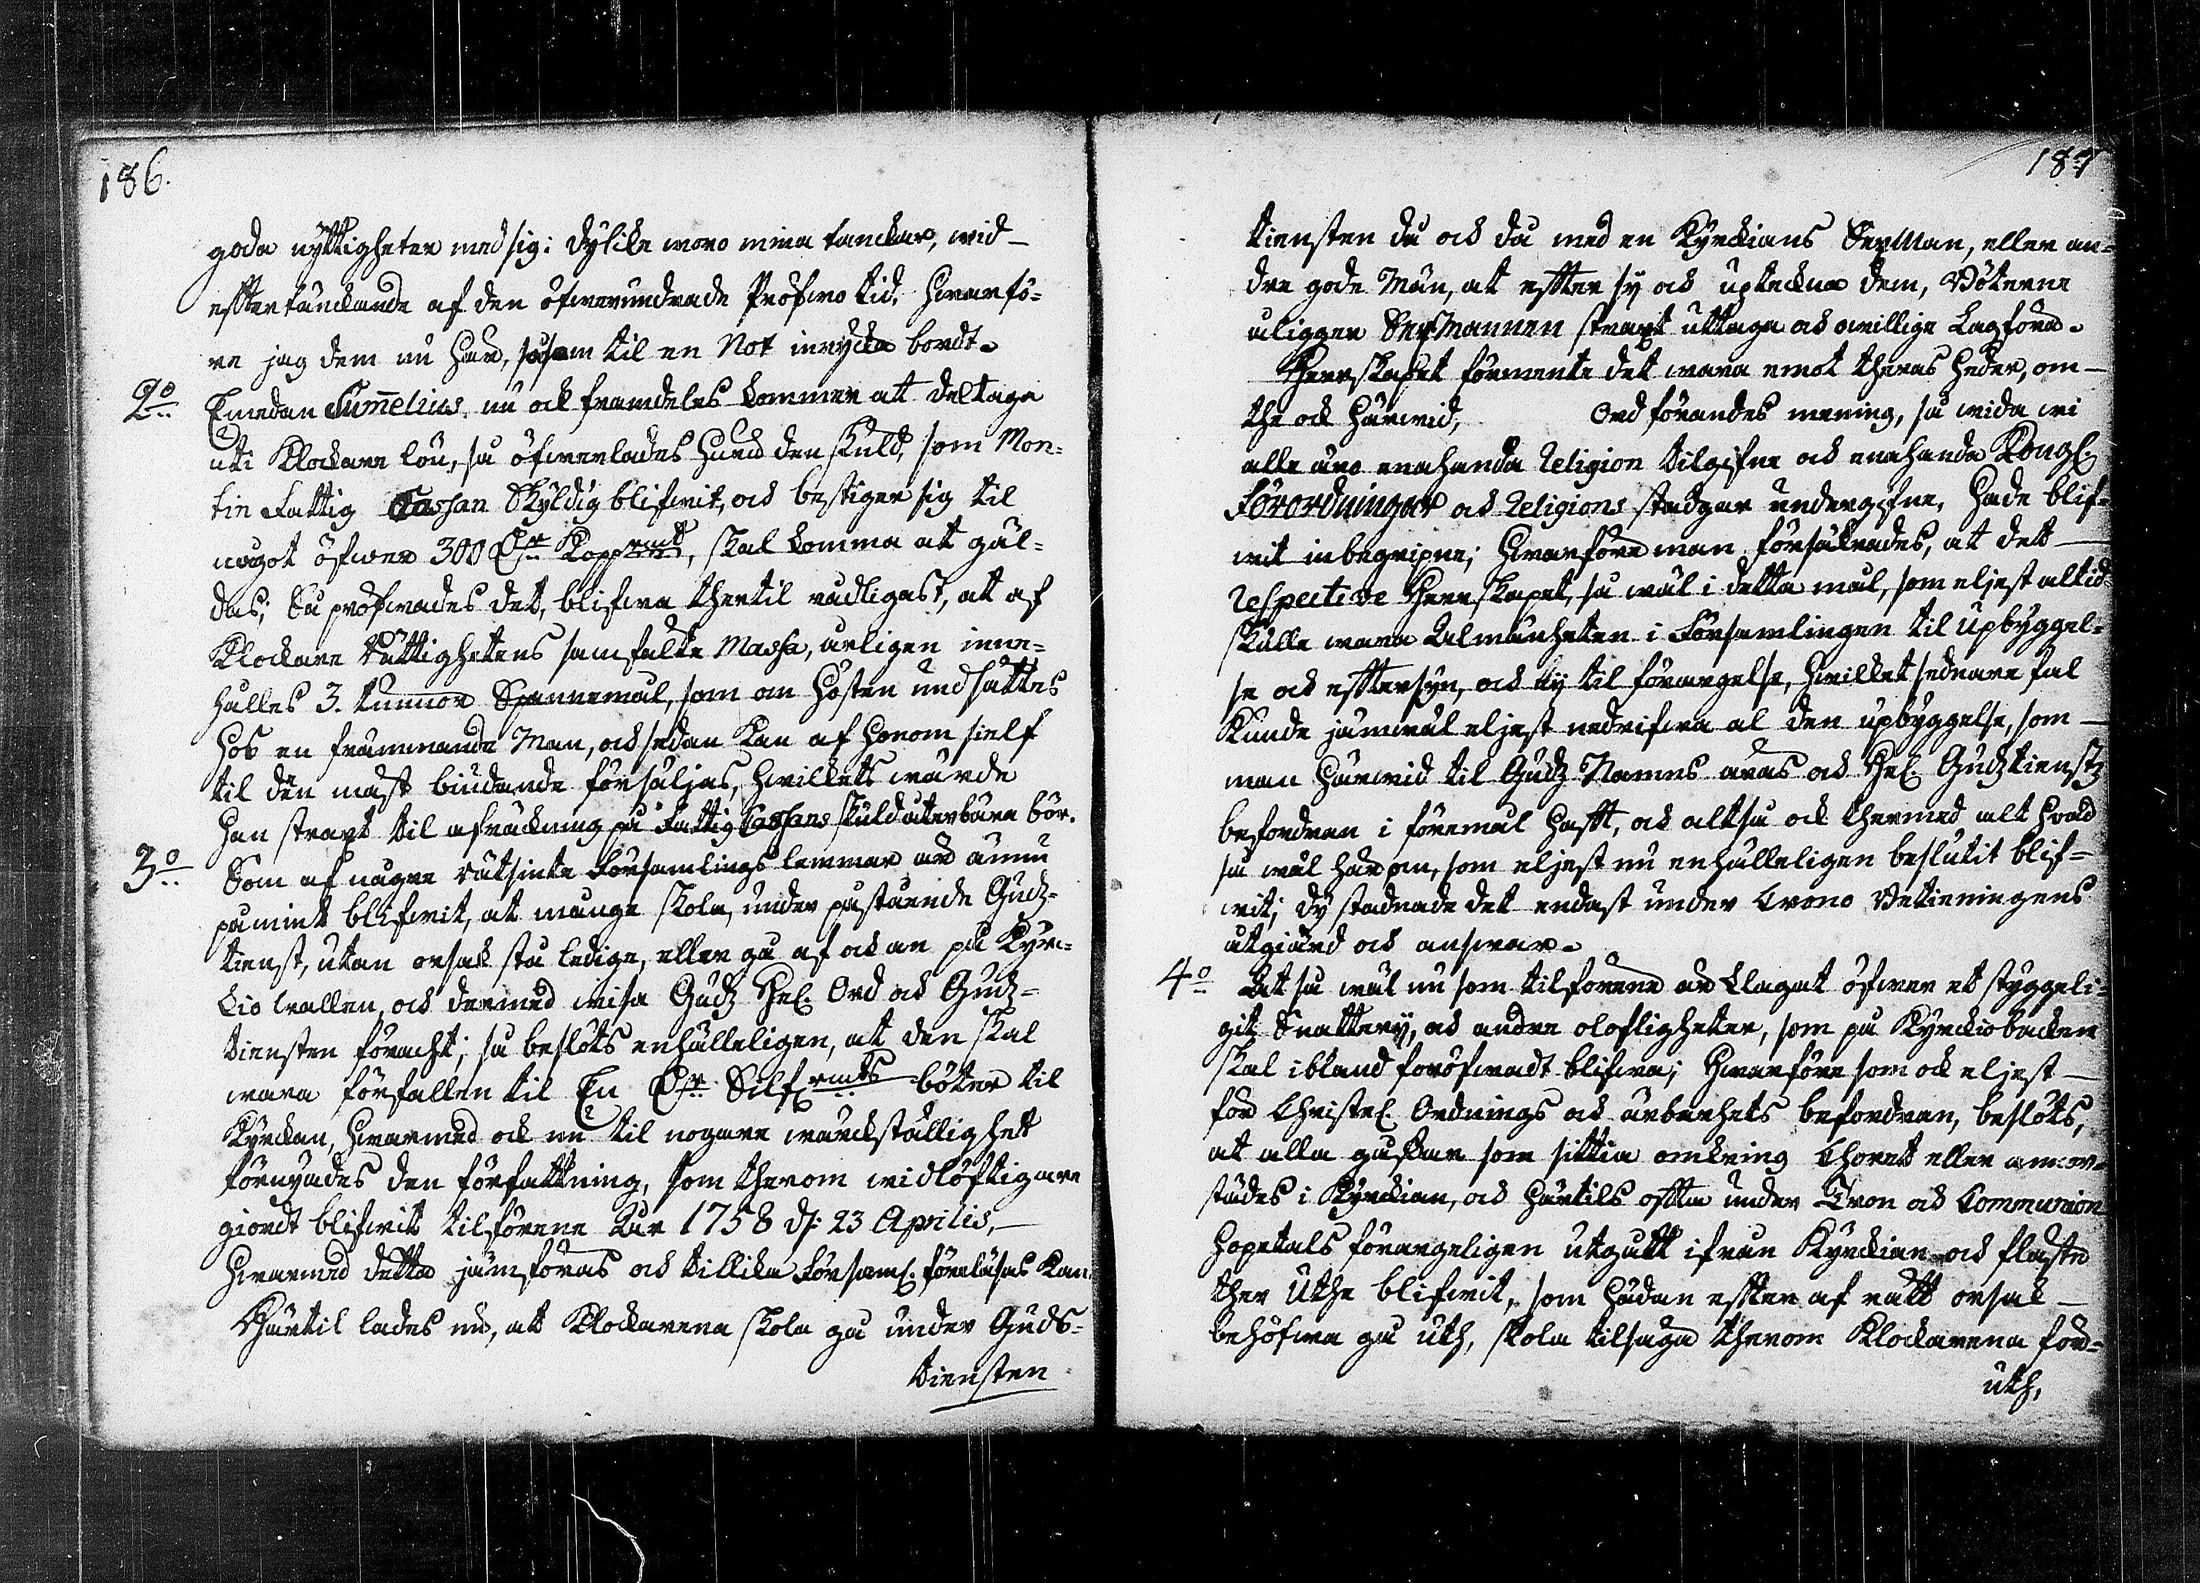 186.
goda nyttigheter med sig: dylike woro mina tanckar, wid
effter tänckande af den öfwerundrade Pröfwo tid, hwarfö-
re jag dem nu har, såsom til en Not inryckia bordt.
2:o Emedan Tum̄elius nu ock framdeles kommer att deltaga
uti Klockare lön, så öfwerlades huru den skuld, som Mon-
tin Fattig Cassan skyldig blifwit, och bestiger sig til
något öfwer 300 D:r Koppr:mt, skal komma at gäl-
das; Så pröfwades det, blifwa thertil rådligast, at af
Klockare Rättighetens samfälte Massa, årligen inne-
hålles 3. tunnor Spannemål, som om hösten undsättes
hos en främmande Man, och sedan kan af honom sielf
til den mäst biudande försäljas, hwilkets wärde
han straxt til afräckning på Fattig Cassans skuld återbära bör.
3:o Som af någre rätsinte Församlings lemmar är ännu
påmint blifwit, at månge skola, under påstående Gudz-
tienst, utan orsak stå ledige, eller gå af och an på Kyr-
kio wallen, och dermed wisa Gudz Hel. Ord och Gudz-
tiensten föracht; så beslöts enhälleligen, at den skal
wara förfallen til En D:r Silf:rmts böter til
Kyrckan, hwarmed ock nu til nogare wärckställighet
förnyades den författning, som therom widlöftigare
giordt blifwit tilförene Åhr 1758 d: 23 Aprilis,
hwarmed detta jämföras och tillika Församl. föreläsas kan.
Härtil lades nu, at Klockarena skola gå under Guds-
tiensten
187
tiensten då och då med en Kyrckians SexMan, eller an-
dre gode Män, at effter sy och upteckna dem, Böterne
åligger SexMannen straxt uttaga och owillige Lagföra.
Herrskapet förmente det wara emot theras heder, om
the ock härwid, Ordförandes mening, så wida wi
alle äro enahanda Religion tilgifne och enahanda Kongl.
Förordningar och Religions stadgar undergifne, hade blif-
wit inbegripne; hwarföre man försäkrades, at det
Respective Herrskapet, så wäl i detta mål, som eljest altid
skulle wara Almänheten i Församlingen til upbyggel-
se och efftersyn, och ej til förargelse, hwilket sednare fal
kunde jämwäl eljest nedrifwa al den upbyggelse, som
man härwid til Gudz Namns äras och Hel. Gudztienstz
befordran i föremål hafft, och altså ock thermed alt hwad
så wäl här om, som eljest nu enhälleligen beslutit blif-
wit; dy stadnade det endast under Crono Betieningens
åtgiärd och answar.
4:o At så wäl nu som tilförene är klagat öfwer et styggeli-
git Snattery, och andre olofligheter, som på Kyrckiobacken
skal ibland föröfwadt blifwa; Hwarföre som ock eljest
för Christel. Ordnings och ärbarhets befordran, beslöts,
at alla gåssar som sittia omkring Choret eller annor-
städes i Kyrckian, och härtils offta under Tron och Communion
hopetals förargeligen utgått ifrån Kyrckian och flaste
ther Uthe blifwit, som hädan effter af rätt orsak
behöfwa gå uth, skola tilsäga therom Klockarena för-
uth,